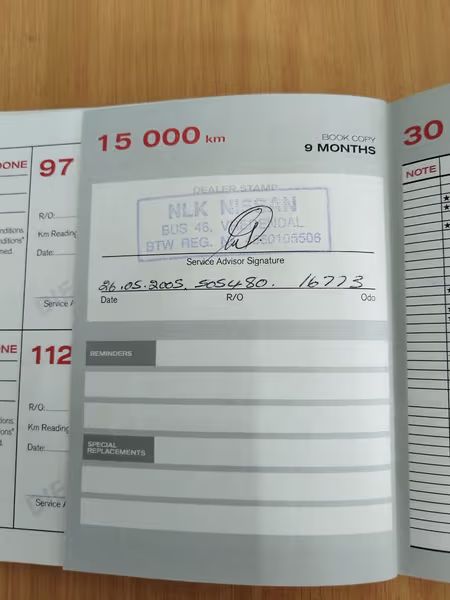 15 000 km
BOOK COPY
9 MONTHS
DEALER STAMP
NLK NISSAN
BUS 46,
BTW REG.
Service Advisor Signature
26.05.2005. 505480. 16773
Date R/O Odo
REMINDERS
SPECIAL
REPLACEMENTS
DONE
97
R/O:
Km Reading
Date:
Service A
112
R/O:
Km Reading
Date:
Service A
30
NOTE